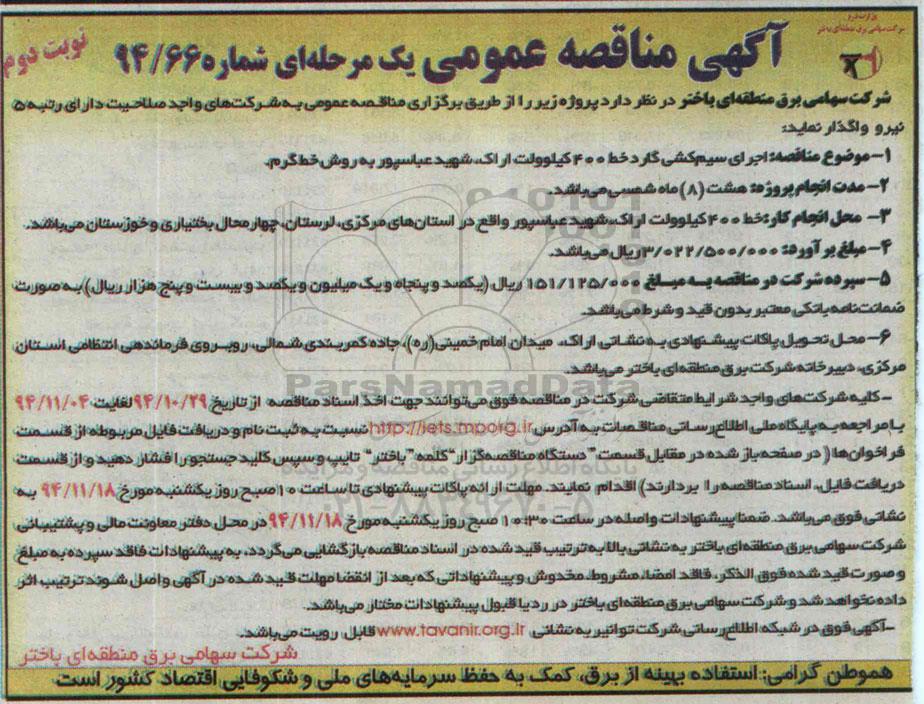 وزارت نیرو
شرکت سهامی برق منطقه‌ای باختر
آگهی مناقصه عمومی یک مرحله‌ای شماره ۹۴/۶۶
نوبت دوم
شرکت سهامی برق منطقه‌ای باختر در نظر دارد پروژه زیر را از طریق برگزاری مناقصه عمومی به شرکت‌های واجد صلاحیت دارای رتبه ۵
نیرو واگذار نماید:
۱- موضوع مناقصه: اجرای سیم‌کشی گارد خط ۴۰۰ کیلوولت اراک، شهید عباسپور به روش خط گرم.
۲- مدت انجام پروژه: هشت (۸) ماه شمسی می‌باشد.
۳- محل انجام کار: خط ۴۰۰ کیلوولت اراک، شهید عباسپور واقع در استان‌های مرکزی، لرستان، چهارمحال بختیاری و خوزستان می‌باشد.
۴- مبلغ برآورد: ۳/۰۲۲/۵۰۰/۰۰۰ ریال می‌باشد.
۵- سپرده شرکت در مناقصه به مبلغ ۱۵۱/۱۲۵/۰۰۰ ریال (یکصد و پنجاه و یک میلیون و یکصد و بیست و پنج هزار ریال) به صورت
ضمانت‌نامه بانکی معتبر بدون قید و شرط می‌باشد.
۶- محل تحویل پاکات پیشنهادی به نشانی اراک، میدان امام خمینی(ره)، جاده کمربندی شمالی، روبروی فرماندهی انتظامی استان
مرکزی، دبیرخانه شرکت برق منطقه‌ای باختر می‌باشد.
- کلیه شرکت‌های واجد شرایط متقاضی شرکت در مناقصه فوق می‌توانند جهت اخذ اسناد مناقصه از تاریخ ۹۴/۱۰/۲۹ لغایت ۹۴/۱۱/۰۴
با مراجعه به پایگاه ملی اطلاع‌رسانی مناقصات به آدرس http://iets.mporg.ir نسبت به ثبت نام و دریافت فایل مربوطه از قسمت
فراخوان‌ها ( در صفحه باز شده در مقابل قسمت" دستگاه مناقصه‌گزار "کلمه" باختر" تایپ و سپس کلید جستجو را فشار دهید و از قسمت
دریافت فایل، اسناد مناقصه را بردارند) اقدام نمایند. مهلت ارائه پاکات پیشنهادی تا ساعت ۱۰ صبح روز یکشنبه مورخ ۹۴/۱۱/۱۸ به
نشانی فوق می‌باشد. ضمنا پیشنهادات واصله در ساعت ۱۰:۳۰ صبح روز یکشنبه مورخ ۹۴/۱۱/۱۸ در محل دفتر معاونت مالی و پشتیبانی
شرکت سهامی برق منطقه‌ای باختر به نشانی بالا به ترتیب قید شده در اسناد مناقصه بازگشایی می‌گردد، به پیشنهادات فاقد سپرده به مبلغ
و صورت قید شده فوق الذکر، فاقد امضا، مشروط، مخدوش و پیشنهاداتی که بعد از انقضا مهلت قید شده در آگهی واصل شوند ترتیب اثر
داده نخواهد شد و شرکت سهامی برق منطقه‌ای باختر در رد یا قبول پیشنهادات مختار می‌باشد.
- آگهی فوق در شبکه اطلاع‌رسانی شرکت توانیر به نشانی www.tavanir.org.ir قابل رویت می‌باشد.
شرکت سهامی برق منطقه‌ای باختر
هموطن گرامی: استفاده بهینه از برق، کمک به حفظ سرمایه‌های ملی و شکوفایی اقتصاد کشور است
ParsNamadData
پایگاه اطلاع رسانی مناقصه و مزایده
۰۲۱-۸۸۳۴۹۶۷۰-۵